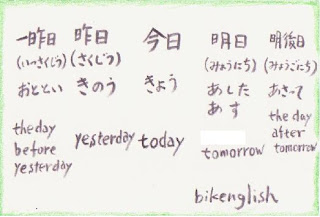 一昨日 昨日 今日 明日 明後日
(いっさくじつ) (さくじつ) (みょうにち) (みょうごにち)
おととい きのう きょう あした あさって
あす
the day before yesterday
yesterday today tomorrow
the day after tomorrow
bikenglish